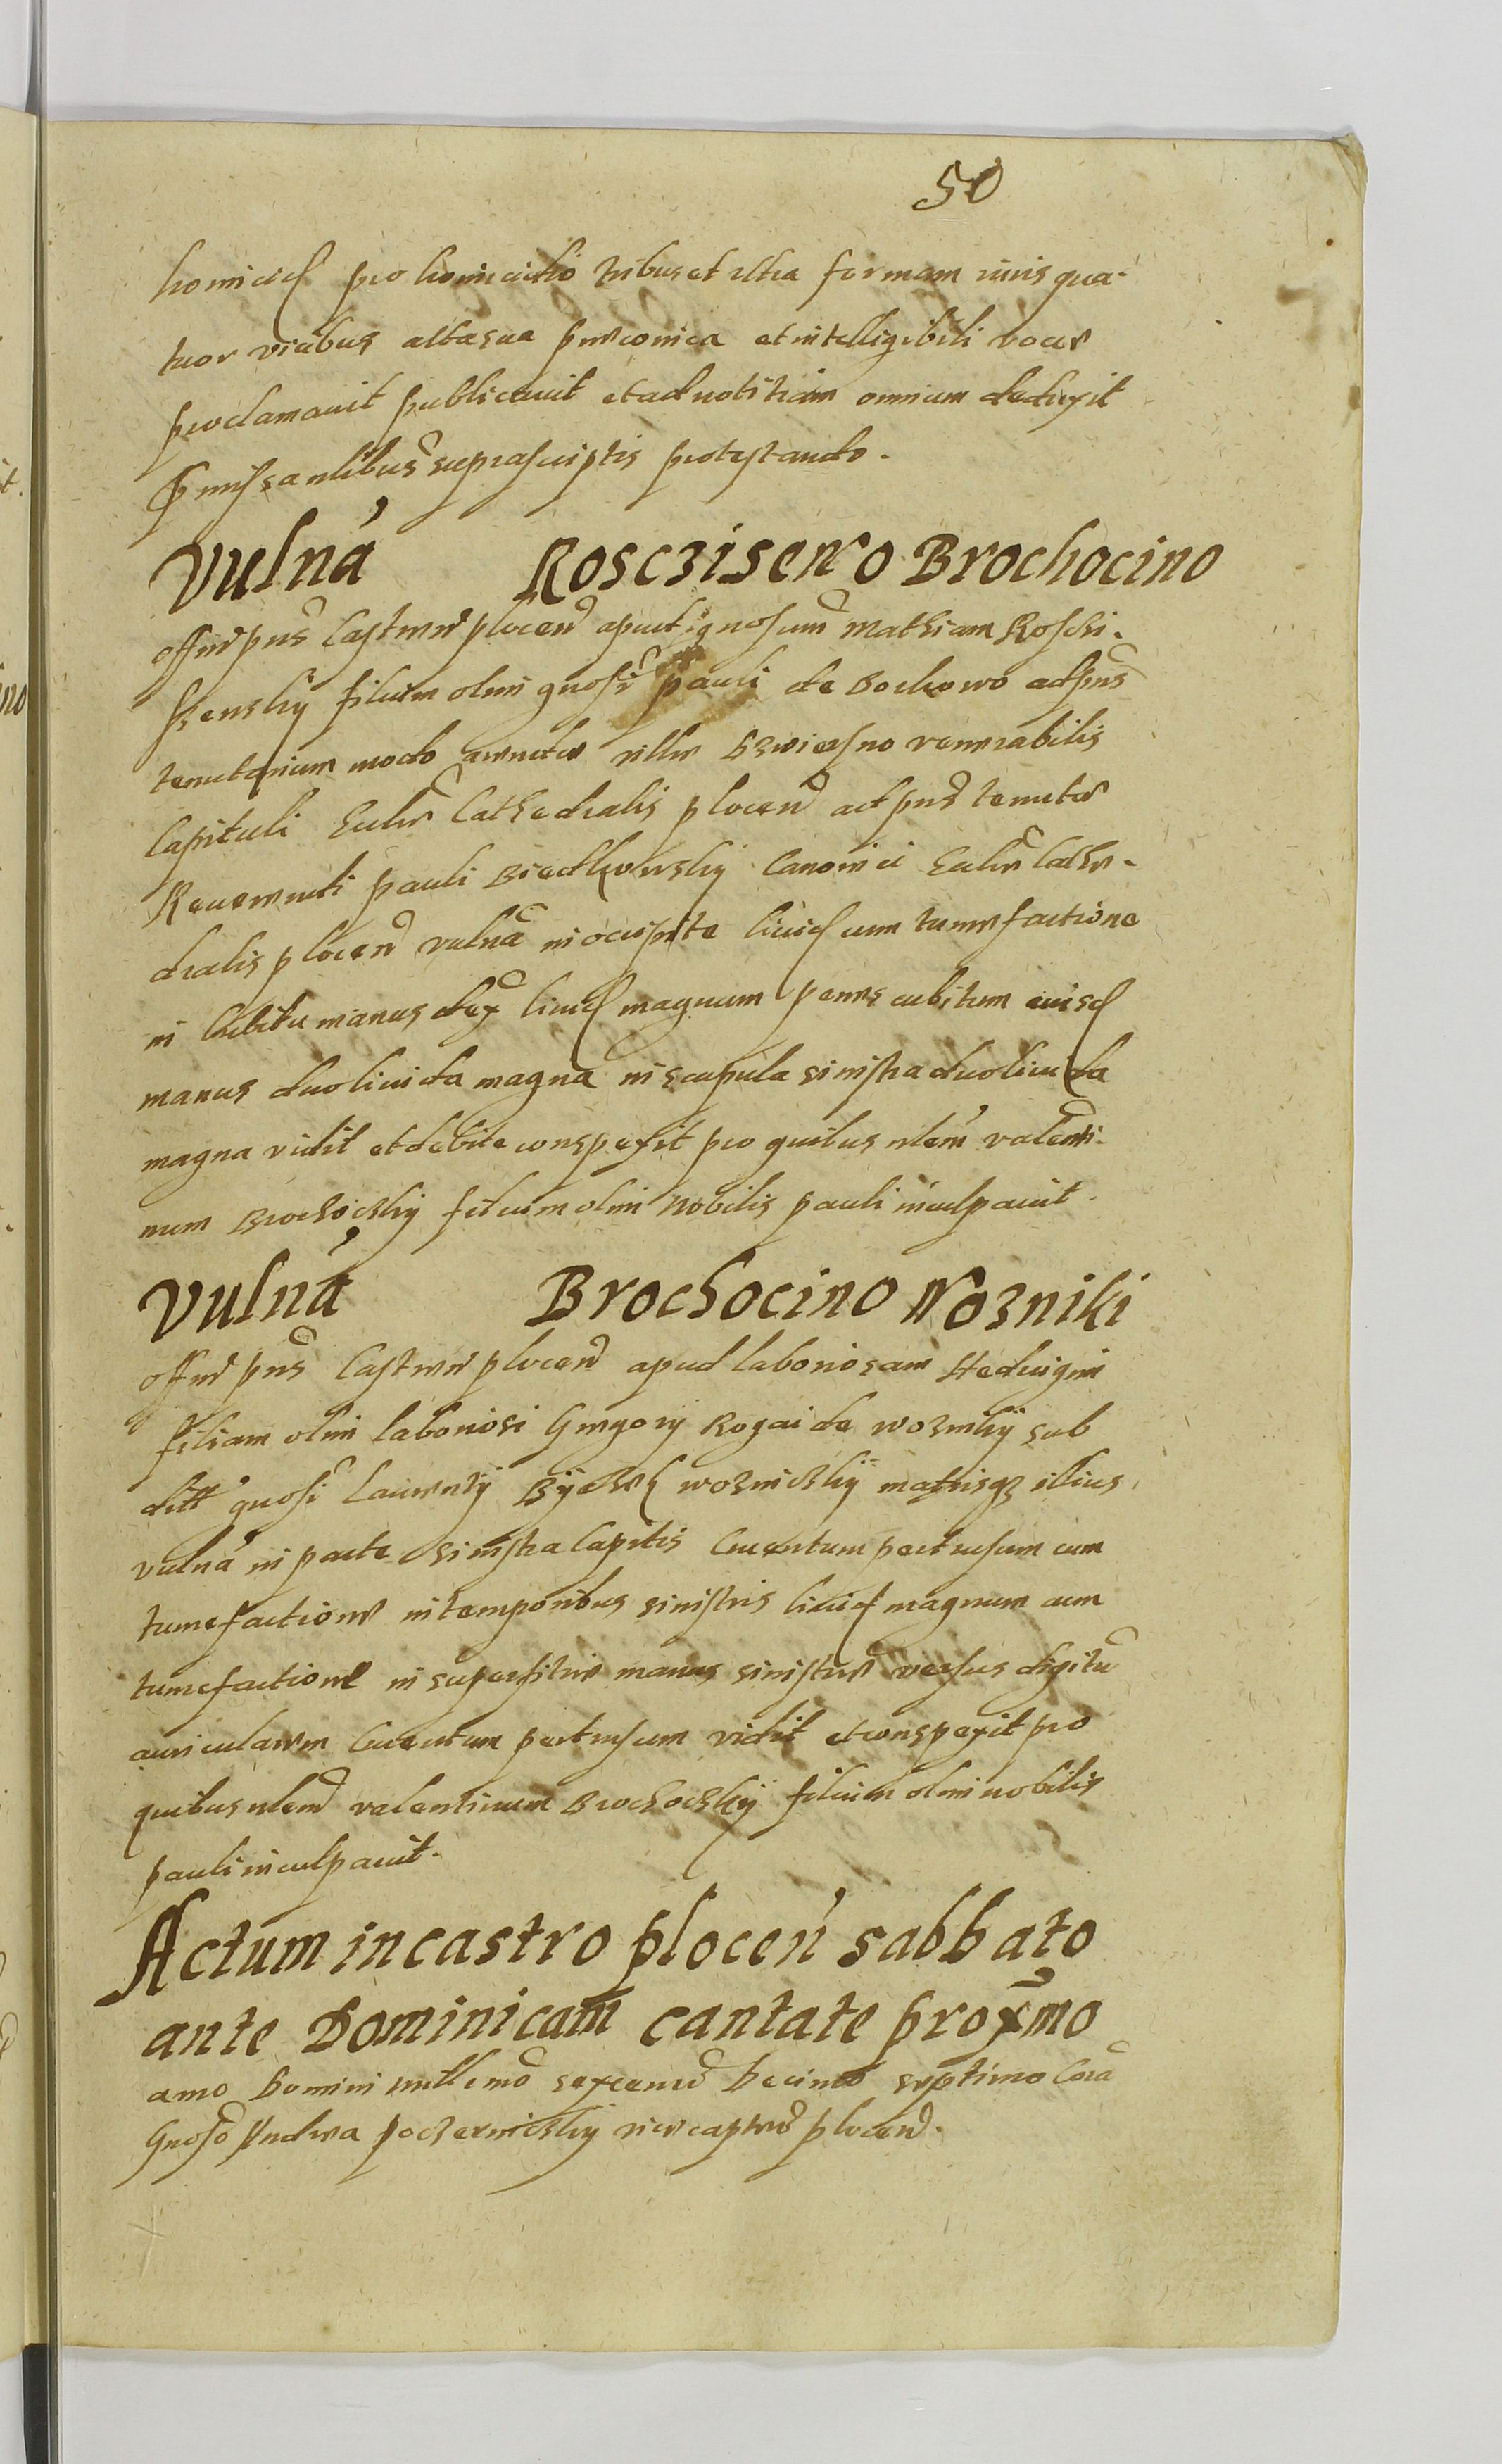 50
homicid pro homicidio tribus et ultra formam iuris qua-
tuor vicibus alta sua preconica et intelligibili voce
proclamauit publicauit et ad notitiam omnium deduxit
suprascriptis protestando.
Vulna Roscziseno Brochocino
offm pns Castren plocen apud gnosum Mathiam Rosci-
szenskij filium olim gnosi pauli de Bochowo ad pns
tenutarium modo arendae villae venerabilis
Capituli Eccliae Cathedralis plocen ad pns tenutae
Reuerendi pauli Canonici Eccliae Cathe-
dralis plocen vulna in occipite liuid cum tumefactione
in Cubitu manus dex liuid magnum penes cubitum eiusd
manus duo liuida magna in scapula sinistra duo liuida
magna vidit et debite conspexit pro quibus idem valenti-
num Brochockij filium olim Nobilis pauli inculpauit.
Vulna Brochocino Wozniki
offm pns Castren plocen apud laboriosam Heduigim
filiam olim laboriosi Gregorij Rogai de woznikij sub
ditt gnosi Laurentij woznickij matrisq illius
vulna in parte sinistra Capitis Cruentum pertusum cum
tumefactione in temporibus sinistris liuid magnum cum
tumefactione in superficie manus sinistrae versus digitu
auricularem Cruentum pertusum vidit et conspexit pro
quibus idem valentinum Brochockij filium olim nobilis
pauli inculpauit.
Actum in castro plocen sabbato
ante Dominicam cantate proxmo
anno Domini millemo sexcenmo Decimo septimo Cora
Gnoso Andrea vicecaptneo plocen.